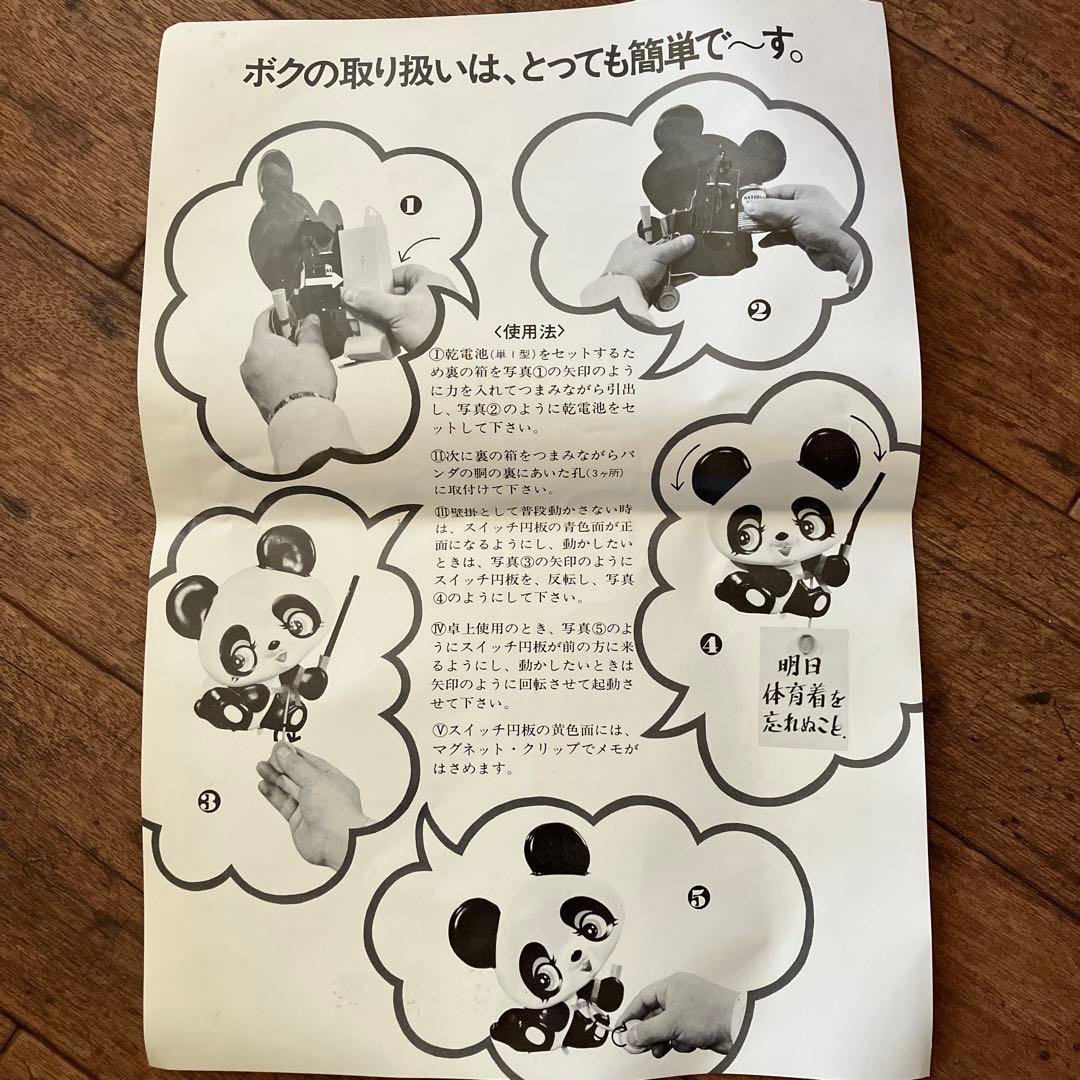 ボクの取り扱いは、とっても簡単で〜す。
❶
❷
〈使用法〉
Ⓘ乾電池(単Ⅰ型)をセットするた
め裏の箱を写真①の矢印のよう
に力を入れてつまみながら引出
し、写真②のように乾電池をセ
ットして下さい。
Ⓘ次に裏の箱をつまみながらパ
ンダの胴の裏にあいた孔(3ヶ所)
に取付けて下さい。
Ⅲ壁掛として普段動かさない時
は、スイッチ円板の青色面が正
面になるようにし、動かしたい
ときは、写真③の矢印のように
スイッチ円板を、反転し、写真
④のようにして下さい。
Ⅳ卓上使用のとき、写真⑤のよ
うにスイッチ円板が前の方に来
るようにし、動かしたいときは
矢印のように回転させて起動さ
せて下さい。
Ⓥスイッチ円板の黄色面には、
マグネット・クリップでメモが
はさめます。
❸
❹
明日
体育着を
忘れぬこと.
❺